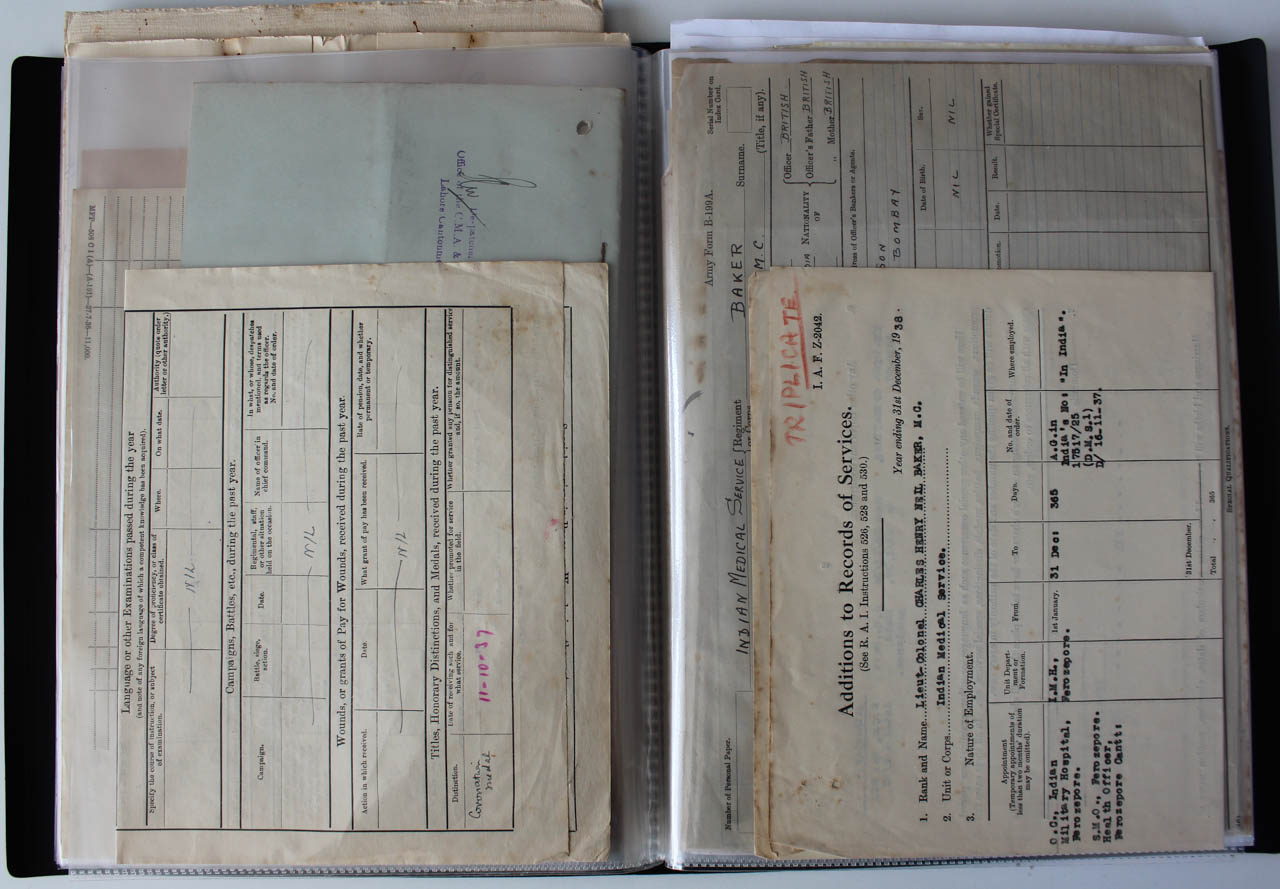 MFP—808 G I (A)—(A-191)—27-7-35—11,000.
Office of the C.M.A. &
Lahore Cantonm
Language or other Examinations passed during the year
(and note of any foreign language of which a competent knowledge has been acquired).
Specify the course of instruction, or subject of examination.
Degree of proficiency, or class of certificate obtained.
Where.
On what date.
Authority (quote order letter or other authority.)
NIL
Campaigns, Battles, etc., during the past year.
Campaign.
Battle, siege, action.
Date.
Regimental, staff, or other situation held on the occasion.
Name of officer in chief command.
In what, or whose, despatches mentioned, and terms used as regards the officer. No. and date of order.
NIL
Wounds, or grants of Pay for Wounds, received during the past year.
Action in which received.
Date.
What grant of pay has been received.
Rate of pension, date, and whether permanent or temporary.
NIL
Titles, Honorary Distinctions, and Medals, received during the past year.
Distinction.
Date of receiving such and for what service.
Whether promoted for service in the field.
Whether granted any pension for distinguished service and, if so, the amount.
Coronation medal
11-10-37
Serial Number on Index Card.
Army Form B-199A.
Number of Personal Paper.
INDIAN MEDICAL SERVICE
Regiment
BAKER
Surname.
M.C.
(Title, if any).
NATIONALITY OF
Officer BRITISH
Officer's Father BRITISH
" Mother BRITISH
of Officer's Bankers or Agents.
SON
BOMBAY
Date of Birth.
Sex.
NIL
NIL
Date.
Result.
Whether gained Special Certificate.
SPECIAL QUALIFICATIONS.
TRIPLICATE
I. A. F. Z-2042.
Additions to Records of Services.
(See R. A. I. Instructions 526, 528 and 530.)
Year ending 31st December, 1938.
1. Rank and Name Lieut-Colonel CHARLES HENRY NEIL BAKER, M.C.
2. Unit or Corps Indian Medical Service.
3. Nature of Employment.
Appointment (Temporary appointments of less than two months' duration may be omitted).
Unit Department or Formation.
From
To
Days.
No. and date of order.
Where employed.
1st January.
O.C., Indian
Military Hospital,
Ferozepore.
S.M.O., Ferozepore.
Health Officer,
Ferozepore Cantt:
I.M.H.,
Ferozepore.
31 Dec:
365
A.G.in
India's No:
17517/25
(D.M.S.1)
D/ 16-11-37.
"In India".
31st December.
Total
365